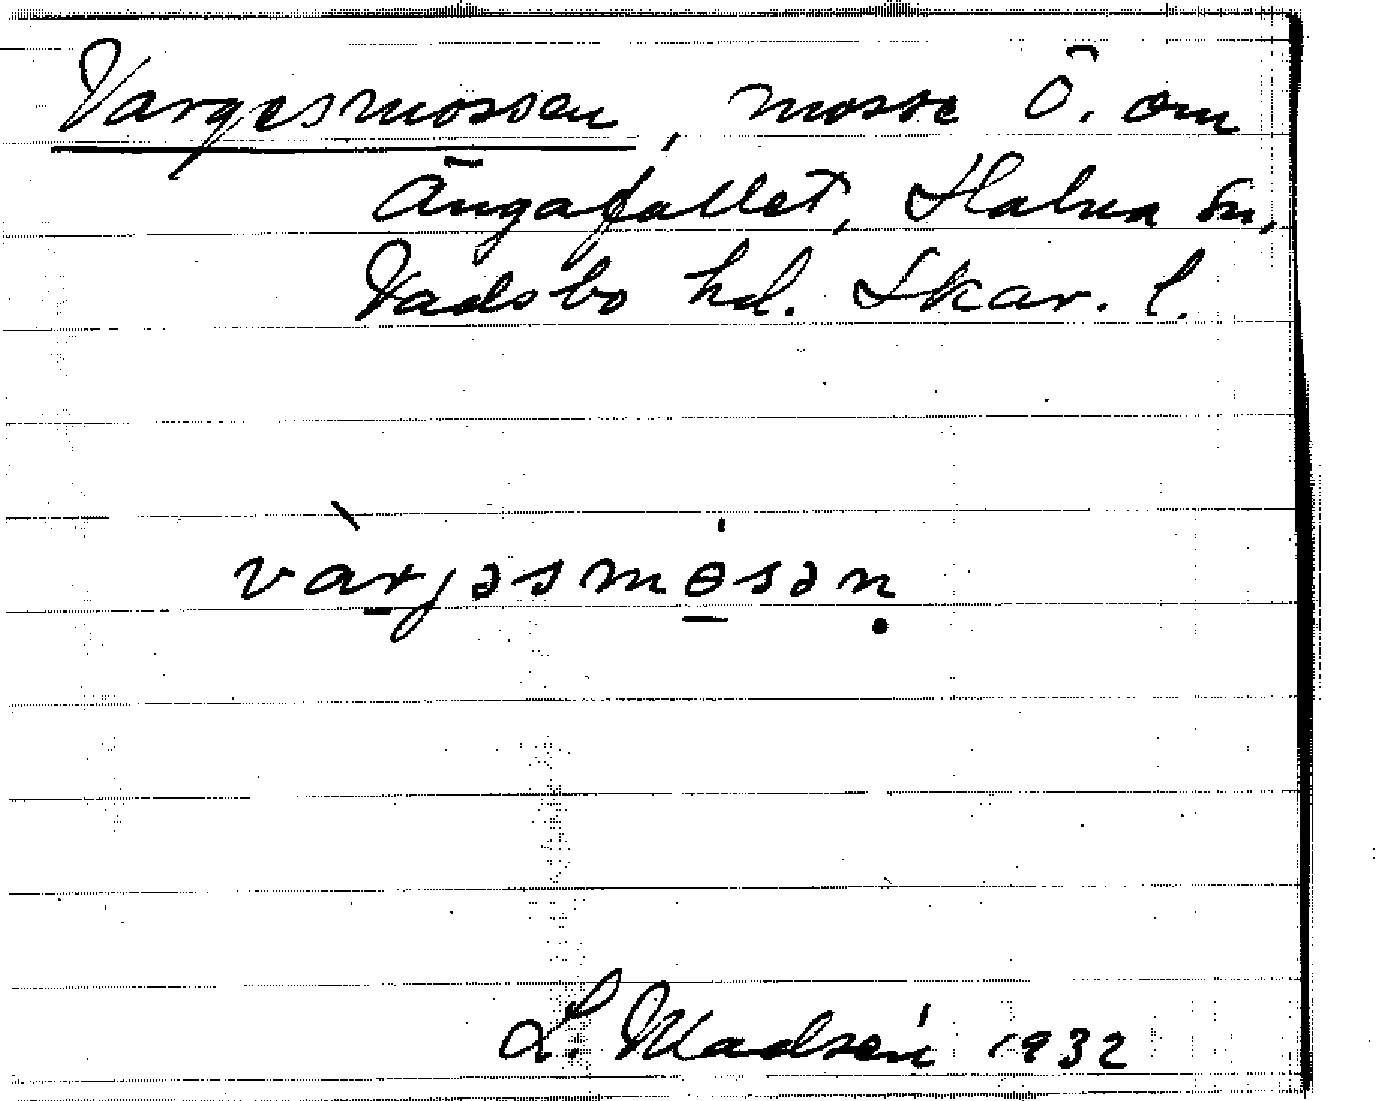 Vargesmossen, mosse Ö. om
Ängafallet, Halna sn,
Vadsbo hd. Skar. l.
vàrjəsmɵsən
L. Madsén 1932